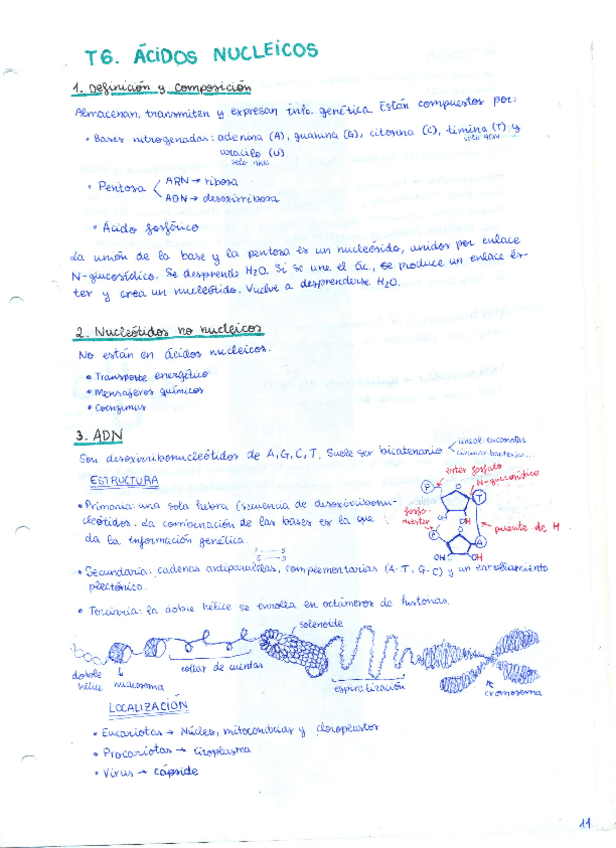 T6. ÁCIDOS NUCLEICOS
1. Definición y composición
Almacenan, transmiten y expresan info. genética. Están compuestos por:
• Bases nitrogenadas: adenina (A), guanina (G), citosina (C), timina (T) y
solo ADN
uracilo (U)
solo ARN
• Pentosa
ARN → ribosa
ADN → desoxirribosa
• Ácido fosfórico
La unión de la base y la pentosa es un nucleósido, unidos por enlace
N-glucosídico. Se desprende H2O. Si se une el ác., se produce un enlace és-
ter y crea un nucleótido. Vuelve a desprenderse H2O.
2. Nucleótidos no nucleicos
No están en ácidos nucleicos.
• Transporte energético
• Mensajeros químicos
• Coenzimas
3. ADN
Son desoxirribonucleótidos de A, G, C, T. Suele ser bicatenario
lineal: eucariotas
circular: bacterias...
ESTRUCTURA
• Primaria: una sola hebra (secuencia de desoxirribonu-
cleótidos. La combinación de las bases es la que
da la información genética.
ester fosfato
N-glucosídico
P
O
T
OH
OH
fosfo-
diester
P
O
A
OH
OH
puente de H
3' 5'
5' 3'
• Secundaria: cadenas antiparalelas, complementarias (A-T, G-C) y un enrollamiento
plectónico.
• Terciaria: la doble hélice se enrolla en octámeros de histonas.
solenoide
doble
hélice
nucleosoma
collar de cuentas
espiralización
cromosoma
LOCALIZACIÓN
• Eucariotas → Núcleo, mitocondrias y cloroplastos
• Procariotas → citoplasma
• Virus → cápside
11